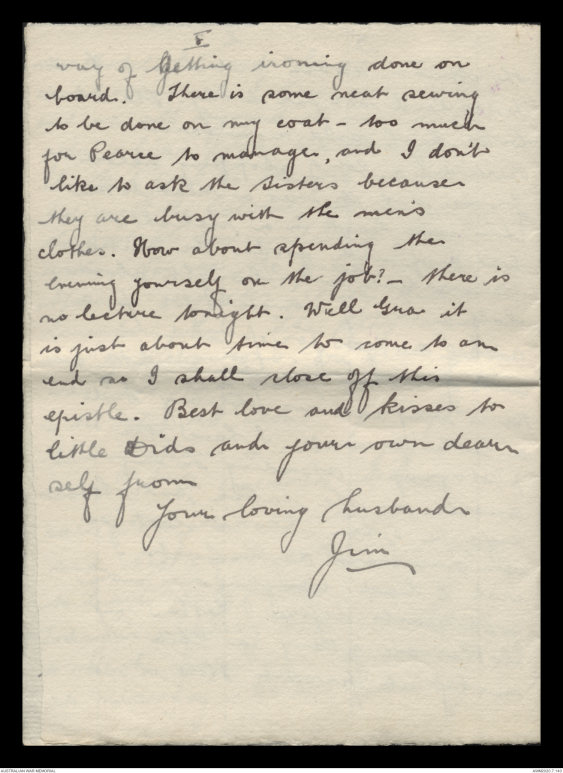 V
way of getting ironing done on
board. There is some neat sewing
to be done on my coat - too much
for Pearce to manage, and I don't
like to ask the Sisters because
they are busy with the men's
clothes. How about spending the
evening yourself on the job? - there is
no lecture tonight. Well Gra it
is just about time to come to an
end so I shall close off this
epistle. Best love and kisses to
little Dids and your own dear
self from
Your loving husband
Jim
AUSTRALIAN WAR MEMORIAL